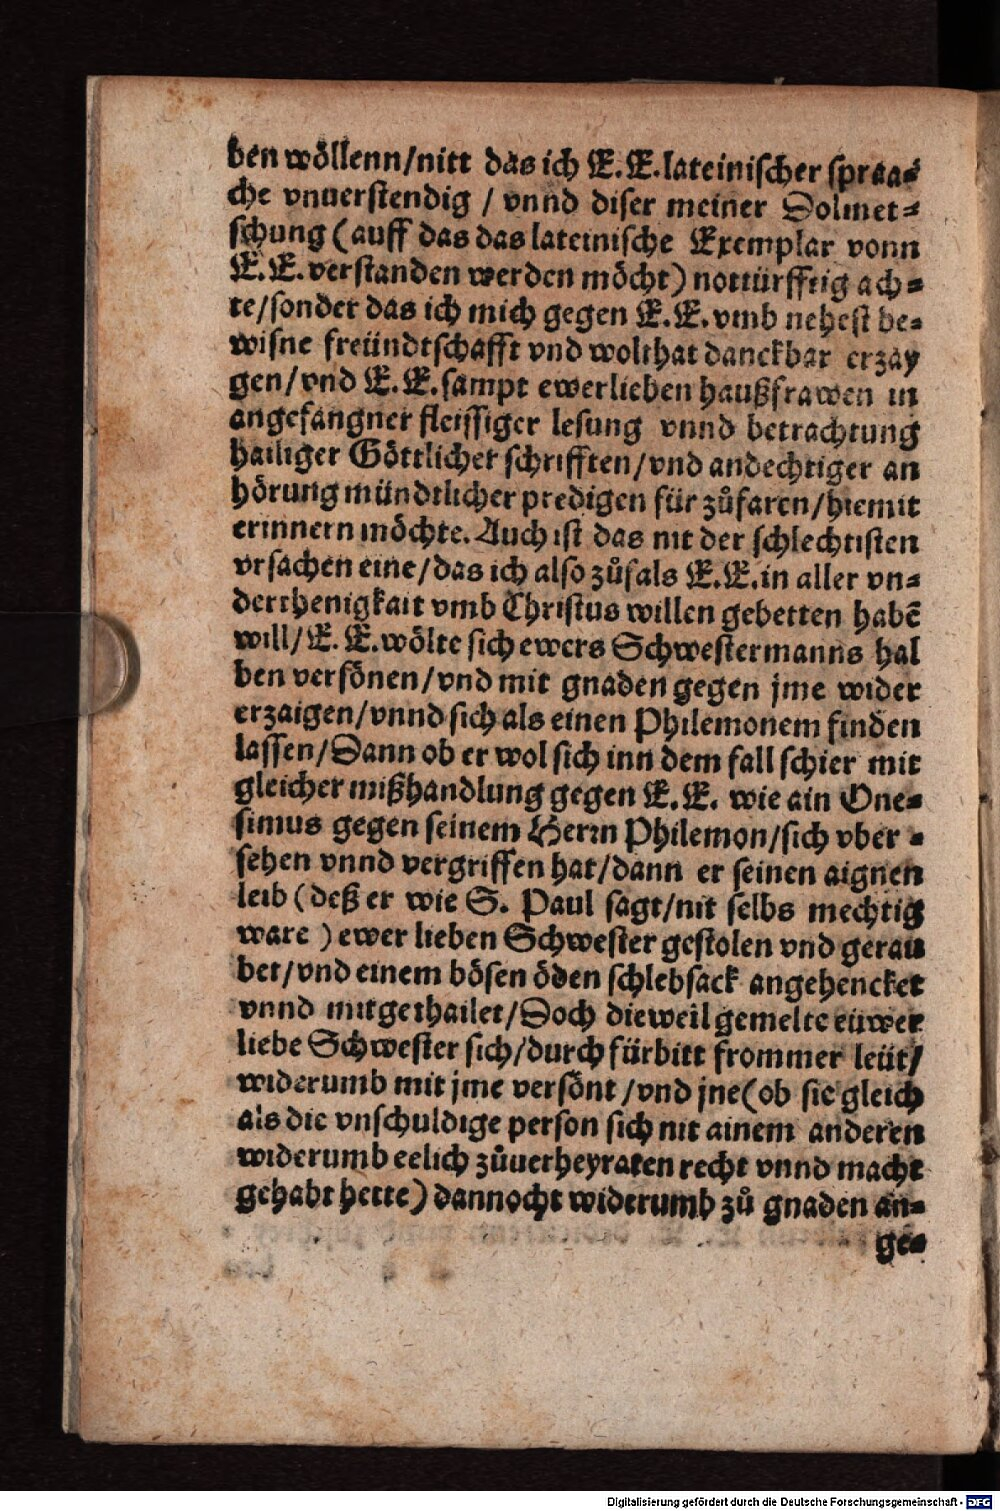 ben wöllenn/nitt das ich E. E. lateinischer spraa⸗
che vnuerstendig / vnnd diser meiner Dolmet⸗
schung (auff das das lateinische Exemplar vonn
E. E. verstanden werden möcht) nottürfftig ach⸗
te/sonder das ich mich gegen E. E. vmb nehest be⸗
wisne freündtschafft vnd wolthat danckbar erzay
gen/vnd E. E. sampt ewer lieben haußfrawen in
angefangner fleissiger lesung vnnd betrachtung
hailiger Göttlicher schrifften/vnd andechtiger an
hörung mündtlicher predigen für zůfaren/hiemit
erinnern möchte. Auch ist das nit der schlechtisten
vrsachen eine/das ich also zůfals E. E. in aller vn⸗
derthenigkait vmb Christus willen gebetten habē
will/E. E. wölte sich ewers Schwestermanns hal
ben versönen/vnd mit gnaden gegen jme wider
erzaigen/vnnd sich als einen Philemonem finden
lassen/Dann ob er wol sich inn dem fall schier mit
gleicher mißhandlung gegen E. E. wie ain One⸗
simus gegen seinem Herrn Philemon/sich vber ⸗
sehen vnnd vergriffen hat/dann er seinen aignen
leib (deß er wie S. Paul sagt/nit selbs mechtig
ware ) ewer lieben Schwester gestolen vnd gerau
bet/vnd einem bösen öden schlebsack angehencket
vnnd mitgethailet/Doch dieweil gemelte eüwer
liebe Schwester sich/durch fürbitt frommer leüt/
widerumb mit jme versönt /vnd jne (ob sie gleich
als die vnschuldige person sich nit ainem anderen
widerumb eelich zůuerheyraten recht vnnd macht
gehabt hette) dannocht widerumb zů gnaden an⸗
ge⸗
Digitalisierung gefördert durch die Deutsche Forschungsgemeinschaft - DFG